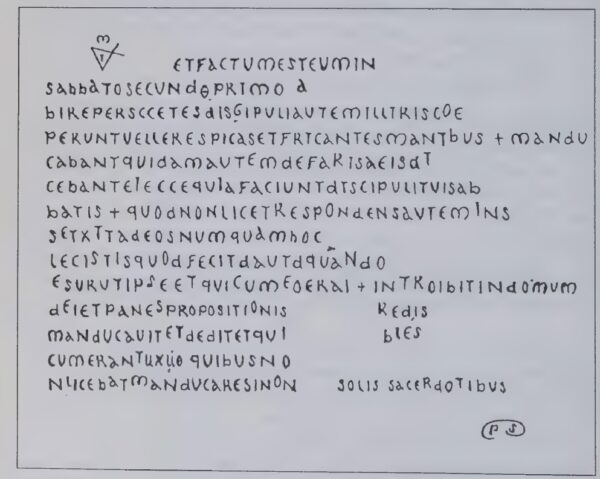 ETFACTUMESTEUMIN
SAbbATOSECUNdOPRIMO A
bIREPERSCCETESdISGIPULIAUTEMILLTRISCOE
PERUNTVELLERESPICASETFRTCANTESMANTbUS + MANdU
CAbANTQUIdAMAUTEMdEFARISAEISdT
CEbANTEIECCEQUIAFACIUNTdTSCIPULITVISAb
bATIS + QUOdNONLICETRESPONdENSAVTEMINS
SETXTTAdEOSNUMQUAMhOC
LECISTISQUOdFECITdAUTdQUANdO
ESURUTIPSEETQUICUMEOERAI + INTROIbITINdOMUM
dEIETPANESPROPOSITIONIS REdIS
MANdUCAUITETdEdITETQUI bLES
CUMERANTUXUO QUIbUSNO
NLICEbATMANdUCARESINON SOLIS SACERdOTIbUS
PS